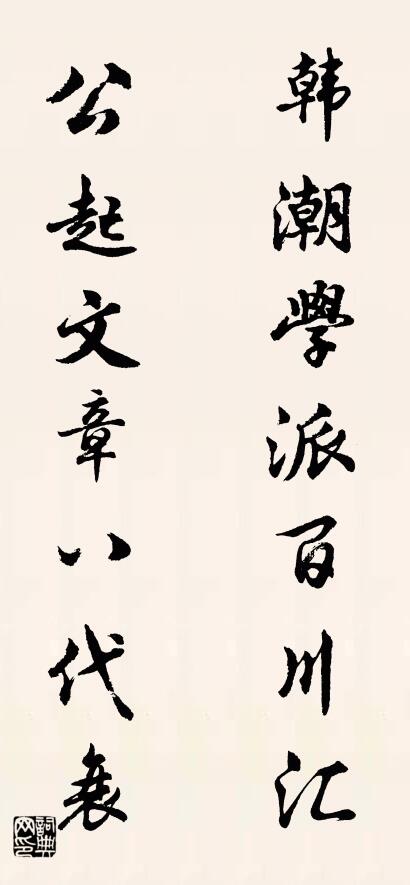 韩潮學派百川汇
公起文章八代衰
詞典网印